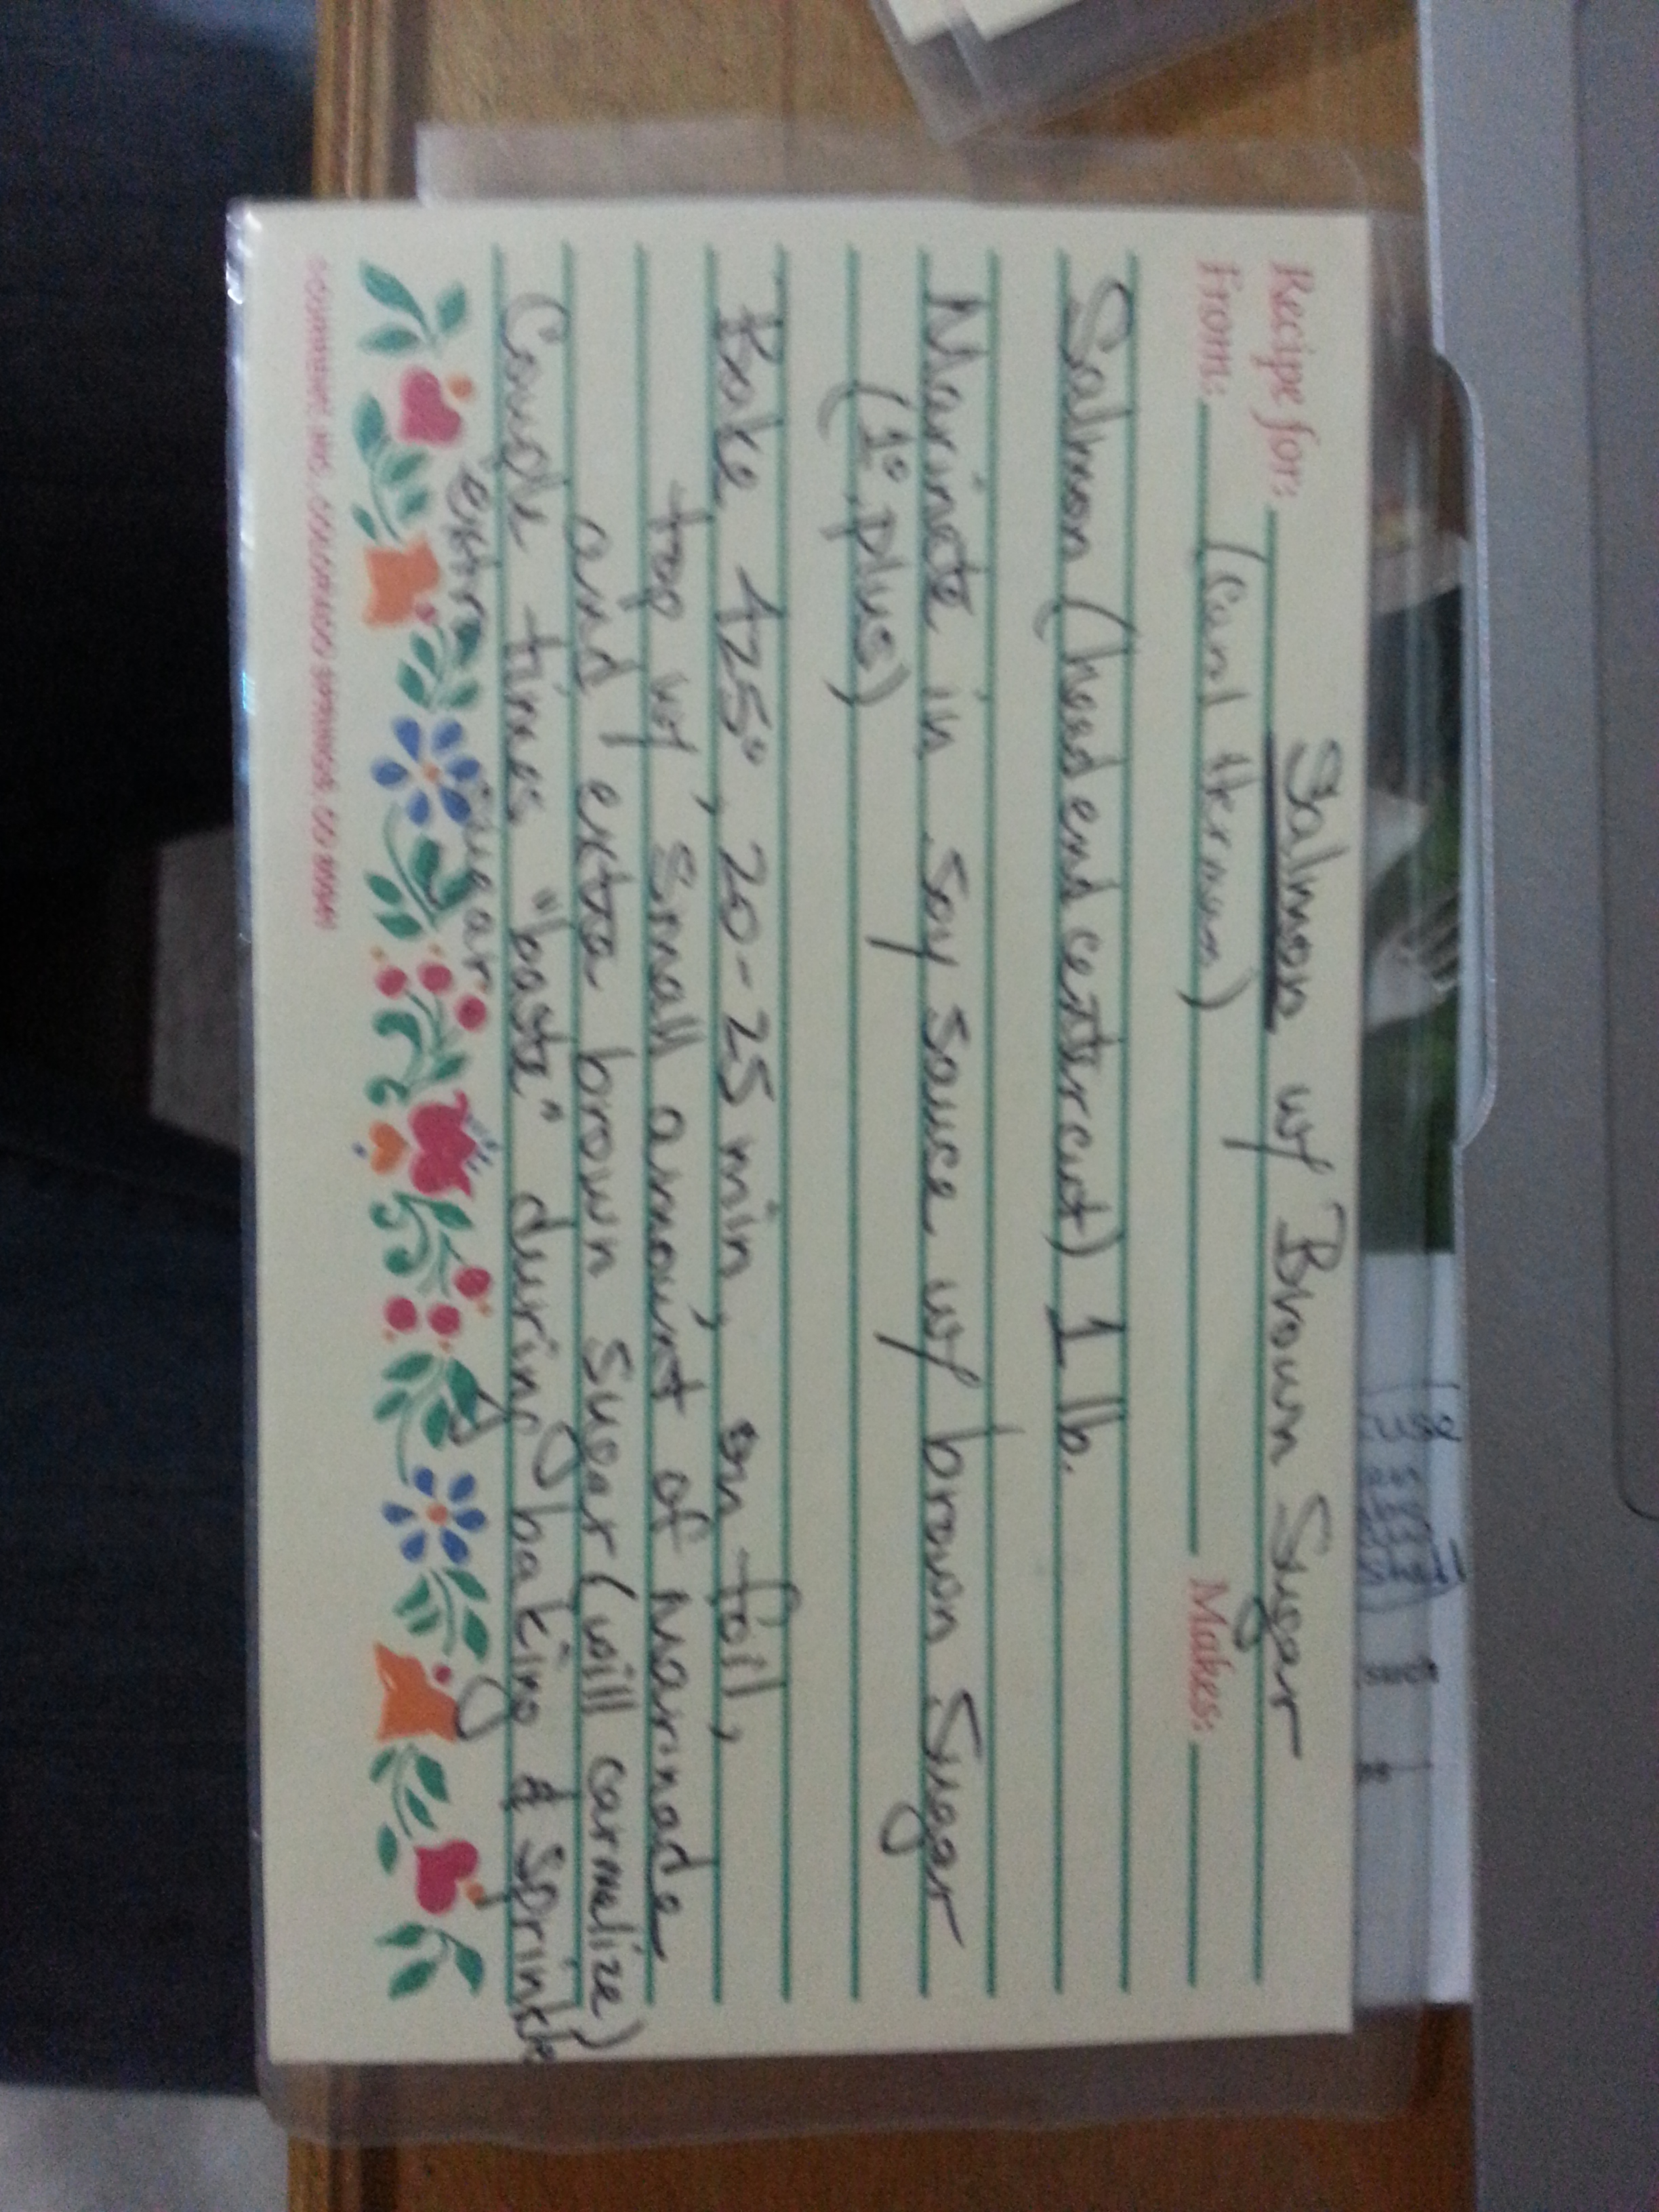 Recipe for: Salmon w/ Brown Sugar
From: (Carol Herman) Makes:
Salmon (head end center cut) 1 lb.
Marinate in Soy Sause w/ brown Sugar
(1° plus)
Bake 425°, 20-25 min, on foil,
top w/ small amount of marinade
and extra brown Sugar (will carmalize)
Couple times "baste" during baking & sprinkle
extra sugar
CURRENT INC., COLORADO SPRINGS, CO
cuse
Shell
such